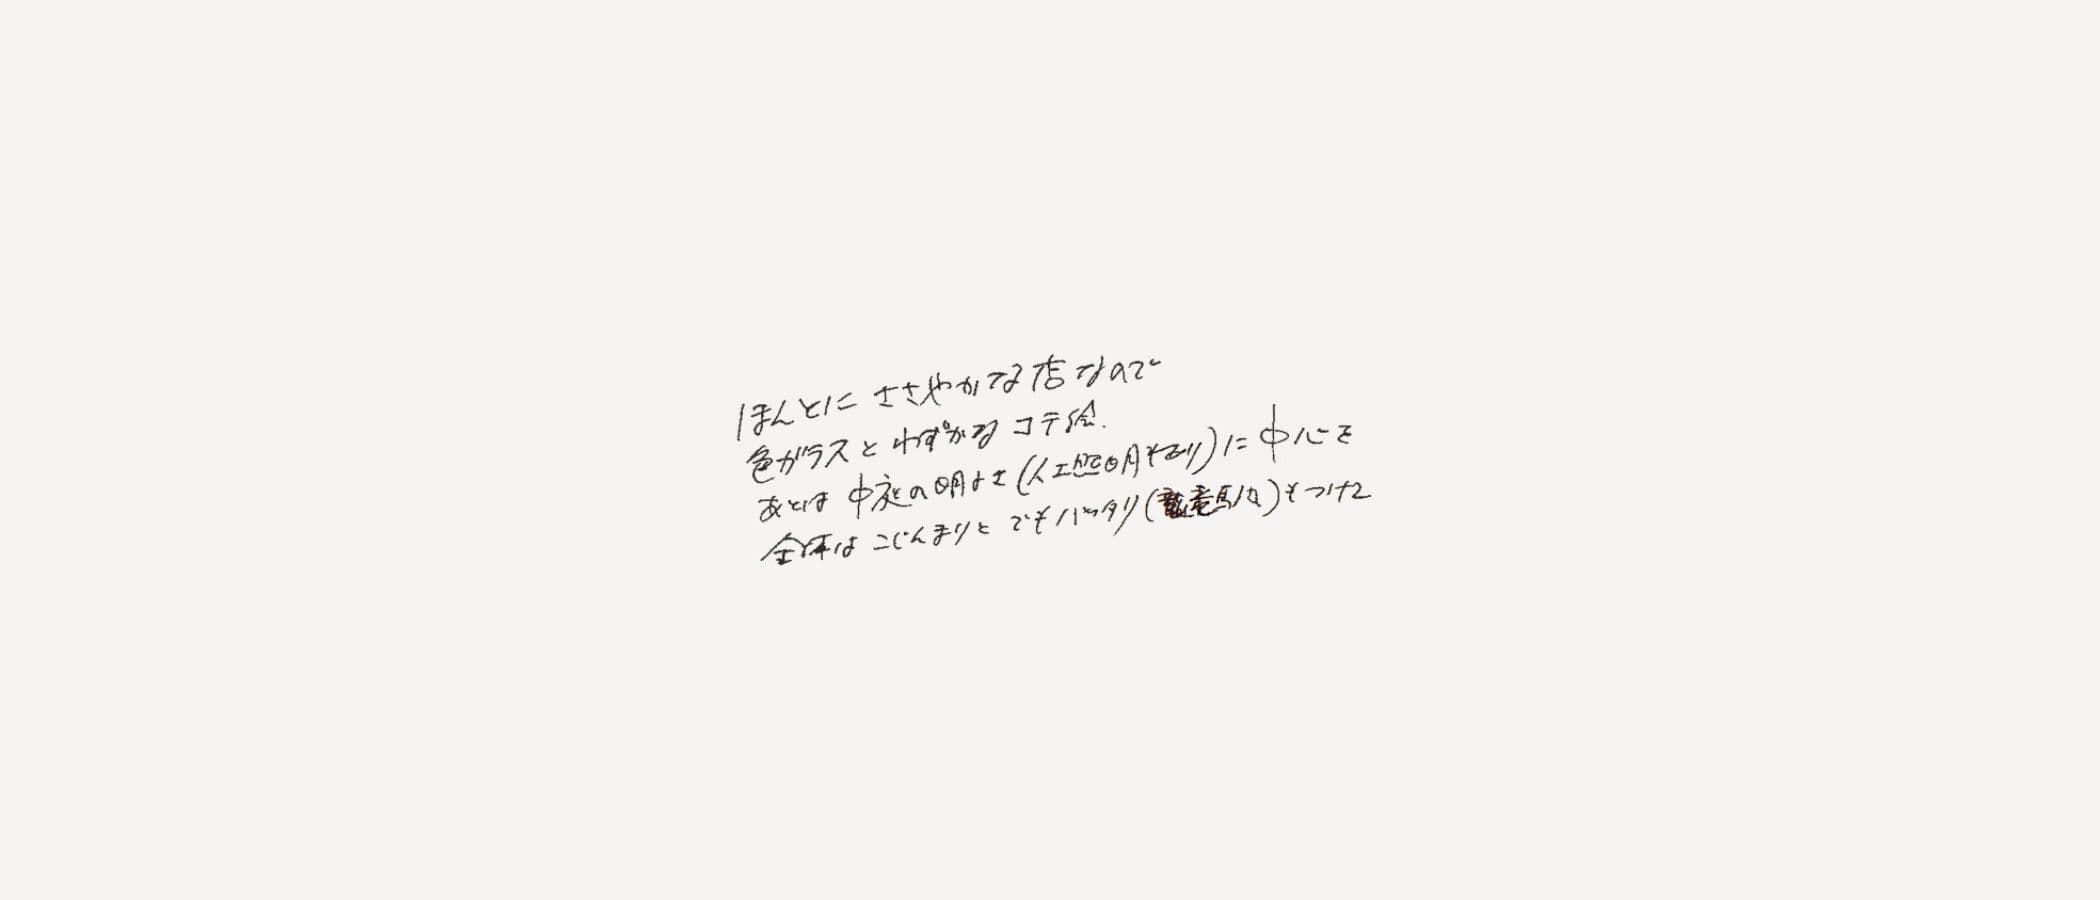 ほんとに ささやかな店なので
色ガラスと わずかなコテ絵.
あとは 中庭の明よさ(人工照明もあり)に中心を
全体は こじんまりと でもバッタリ(馬)もつけて